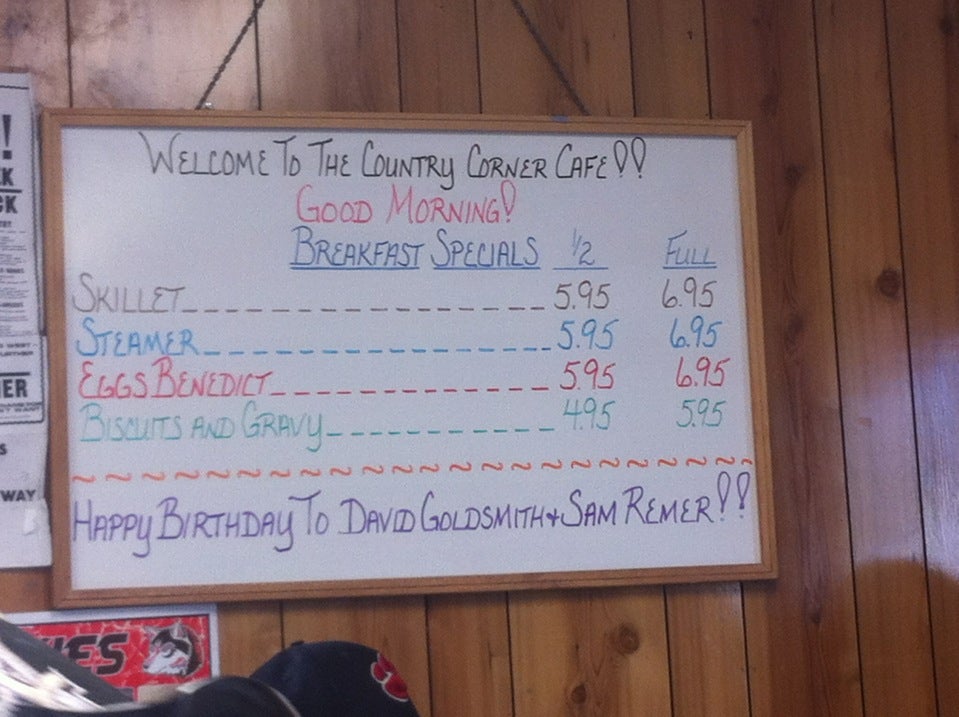 WELCOME TO THE COUNTRY CORNER CAFE!!
GOOD MORNING!
BREAKFAST SPECIALS 1/2 FULL
SKILLET 5.95 6.95
STEAMER 5.95 6.95
EGGS BENEDICT 5.95 6.95
BISCUITS AND GRAVY 4.95 5.95
HAPPY BIRTHDAY TO DAVID GOLDSMITH + SAM REMER!!